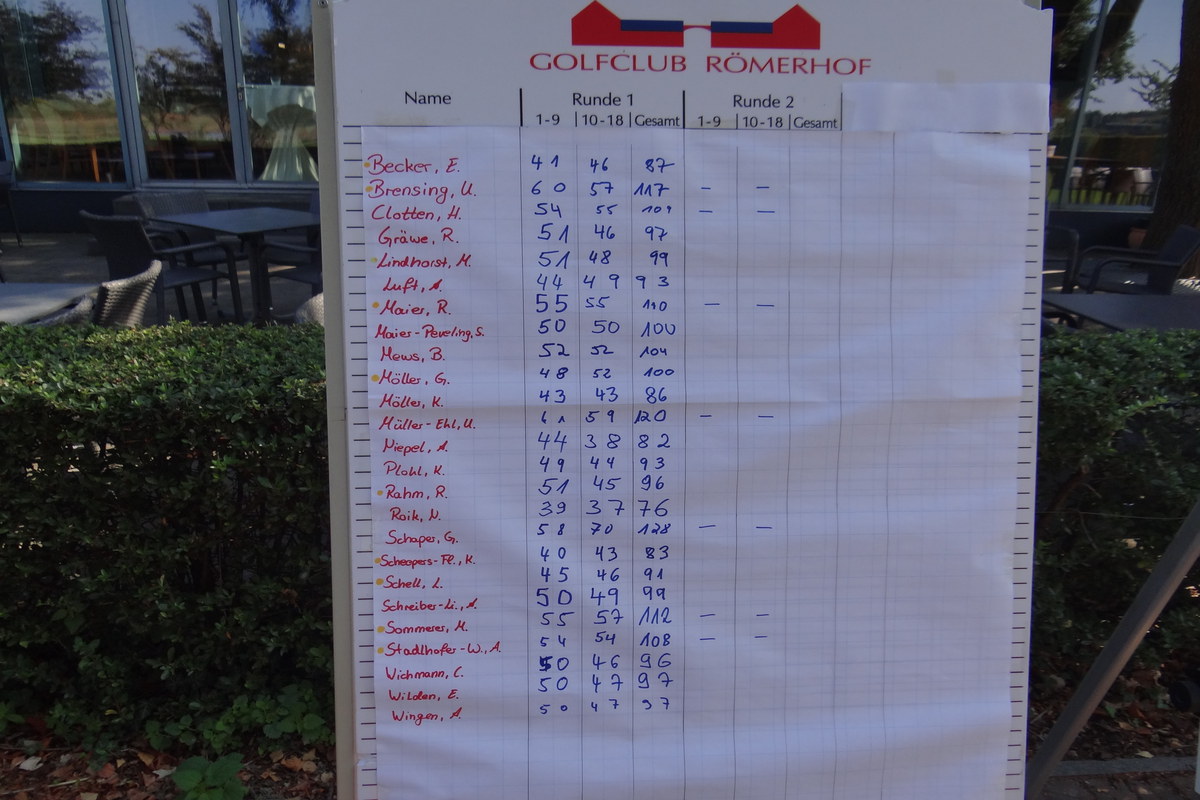 GOLFCLUB RÖMERHOF
Name Runde 1 Runde 2
1-9 10-18 Gesamt 1-9 10-18 Gesamt
Becker, E. 41 46 87
Brensing, U. 60 57 117 – –
Clotten, H. 54 55 109 – –
Gräwe, R. 51 46 97
Lindhorst, M. 51 48 99
Luft, A. 44 49 93
Maier, R. 55 55 110 – –
Maier-Peveling, S. 50 50 100
Mews, B. 52 52 104
Möller, G. 48 52 100
Möller, K. 43 43 86
Müller-Ehl, U. 61 59 120 – –
Niepel, A. 44 38 82
Plohl, K. 49 44 93
Rahm, R. 51 45 96
Raik, N. 39 37 76
Schaper, G. 58 70 128 – –
Scheapers-Fl., K. 40 43 83
Schell, L. 45 46 91
Schreiber-Li., A. 50 49 99
Sommerer, M. 55 57 112 – –
Stadlhofer-W., A. 54 54 108 – –
Wichmann, C. 50 46 96
Wilden, E. 50 47 97
Wingen, A. 50 47 97